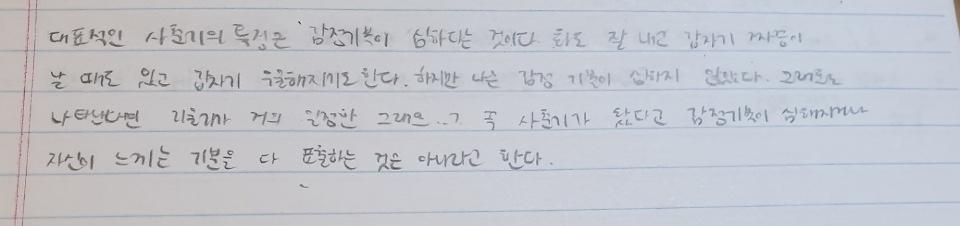 대표적인 사춘기의 특징은 감정기복이 심하다는 것이다. 화도 잘 내고 갑자기 짜증이
날 때도 있고 갑자기 우울해지기도 한다. 하지만 나는 감정 기복이 심하지 않았다. 그래프로
나타낸다면 기울기가 거의 일정한 그래프..? 꼭 사춘기가 왔다고 감정기복이 심해지거나
자신이 느끼는 기분을 다 표출하는 것은 아니라고 한다.